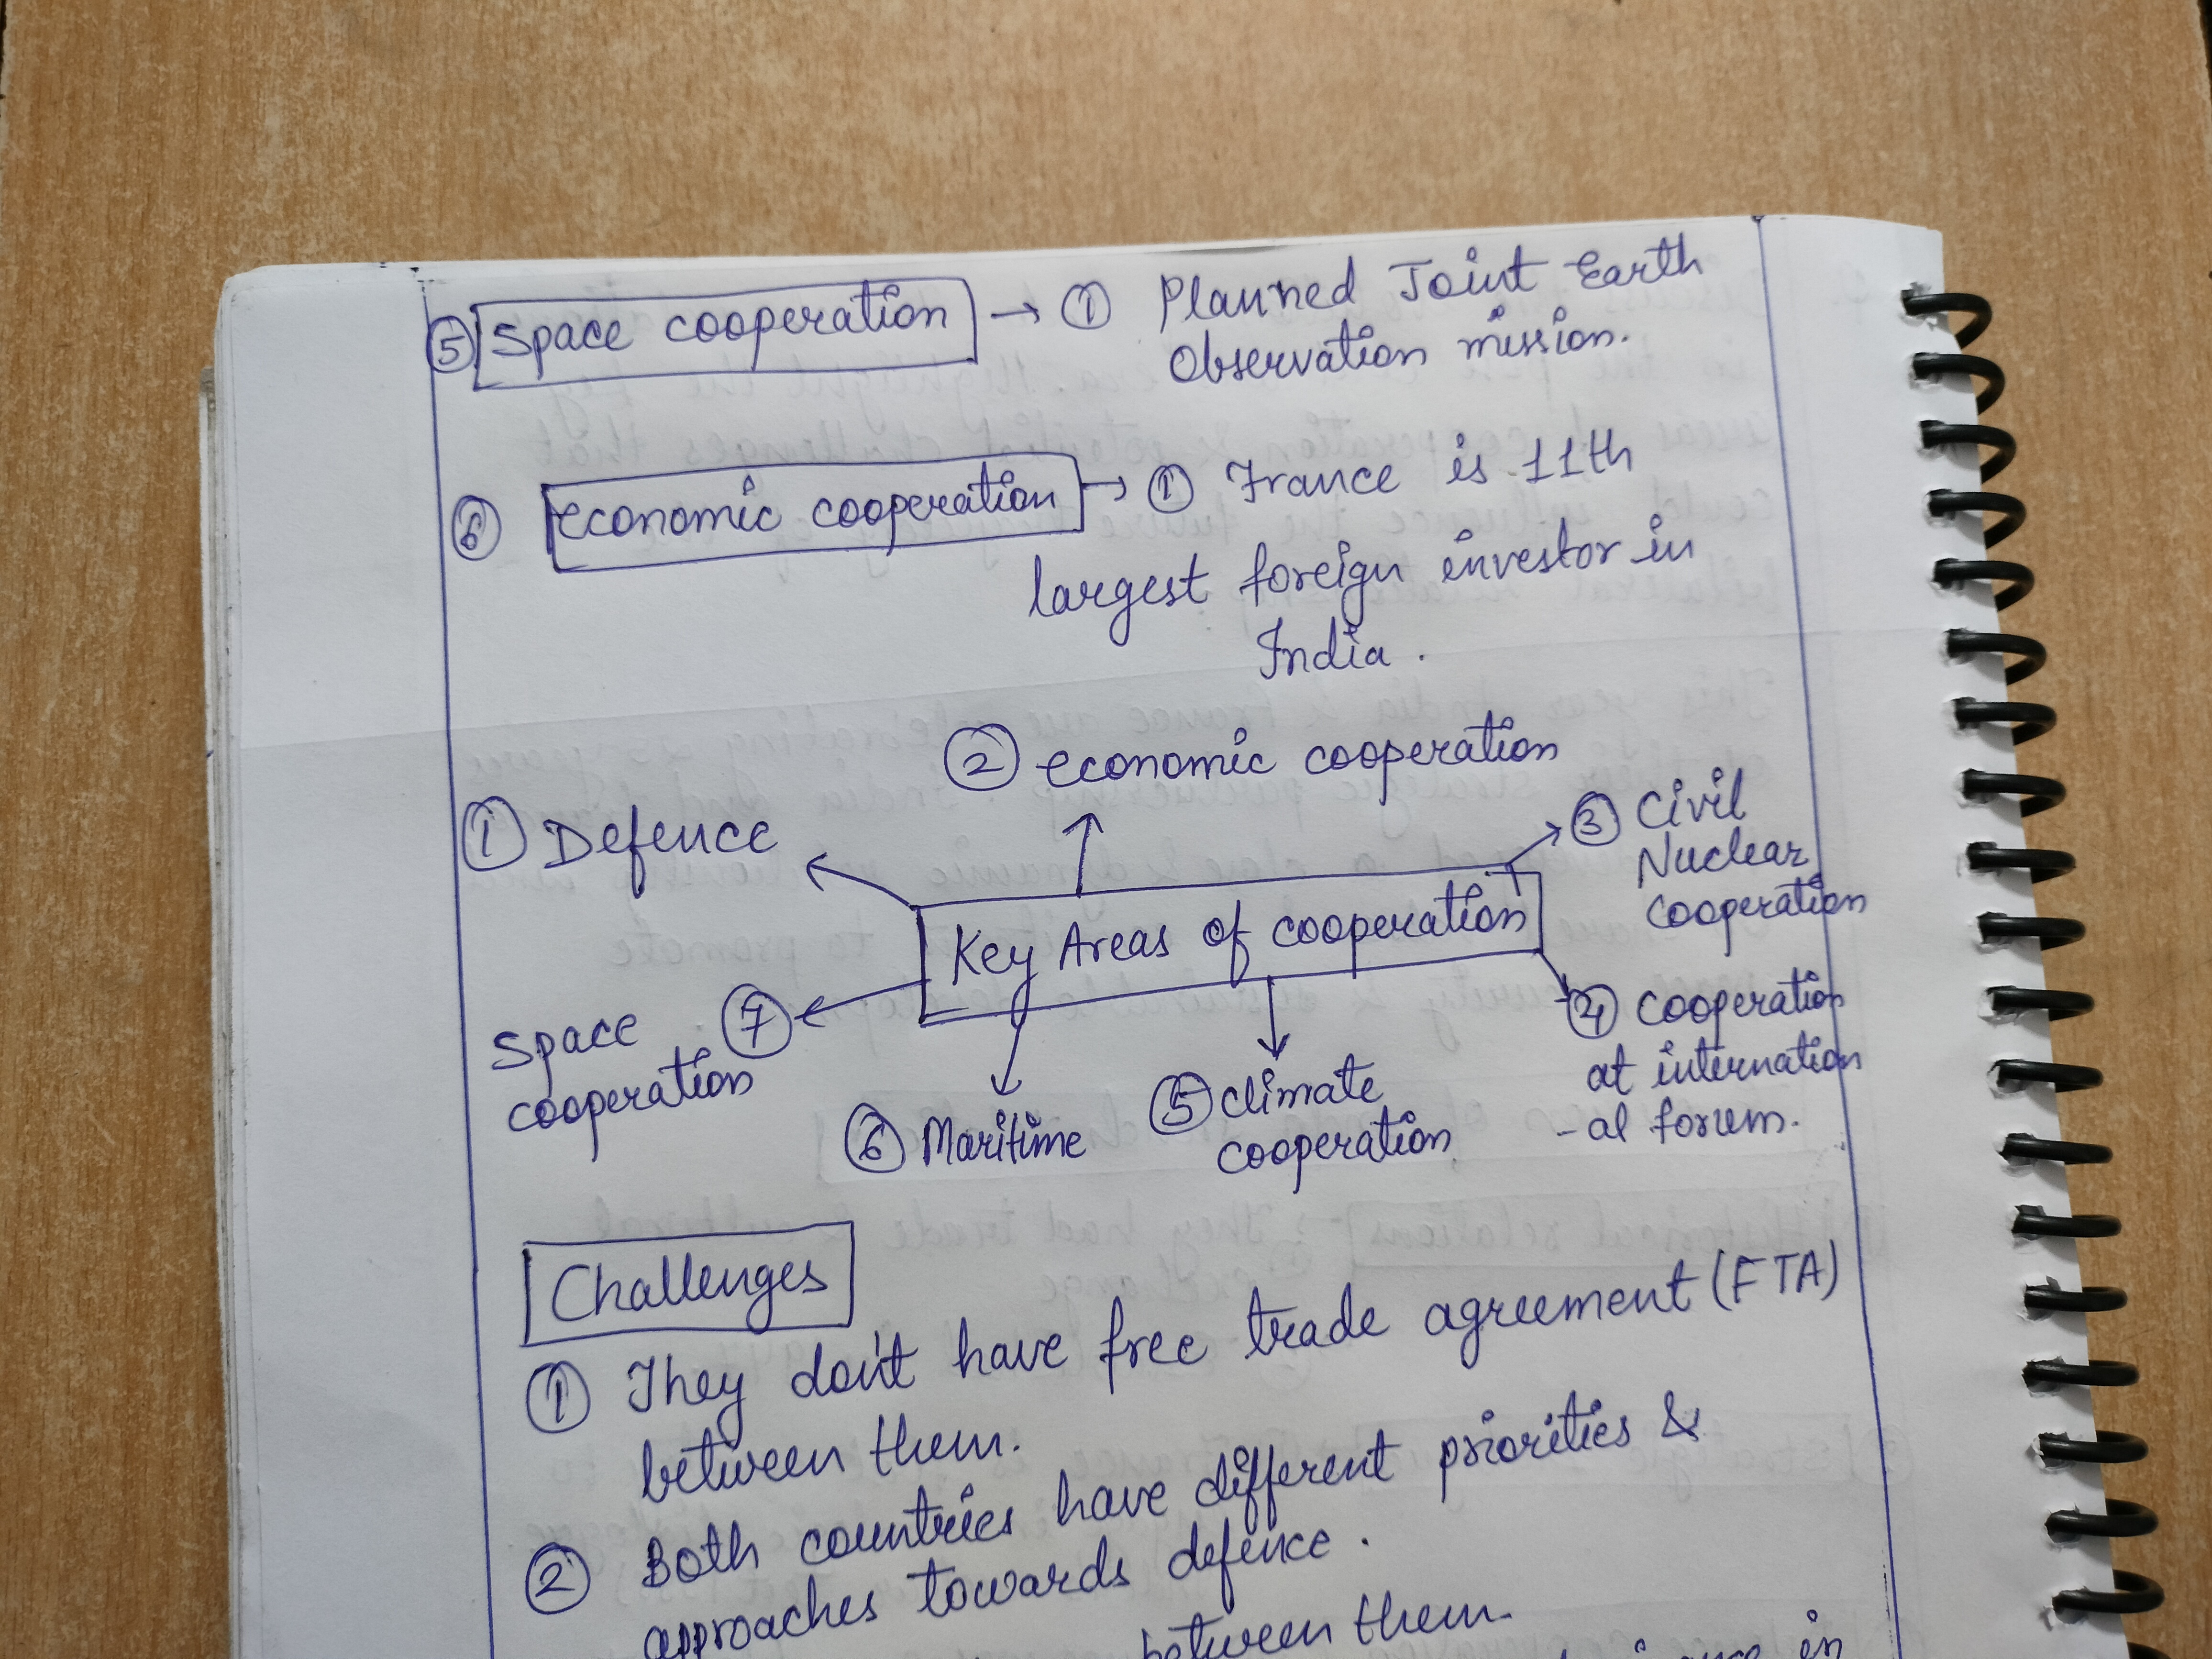 ⑤ Space cooperation → ① Planned Joint Earth
Observation mission.
⑥ economic cooperation → ① France is 11th
largest foreign investor in
India.
② economic cooperation
① Defence
③ Civil
Nuclear
cooperation
Key Areas of cooperation
④ cooperation
at internation
-al forum.
Space ⑦
cooperation
⑥ Maritime
⑤ climate
cooperation
Challenges
① They don't have free trade agreement (FTA)
between them.
② Both countries have different priorities &
approaches towards defence.
between them.
in